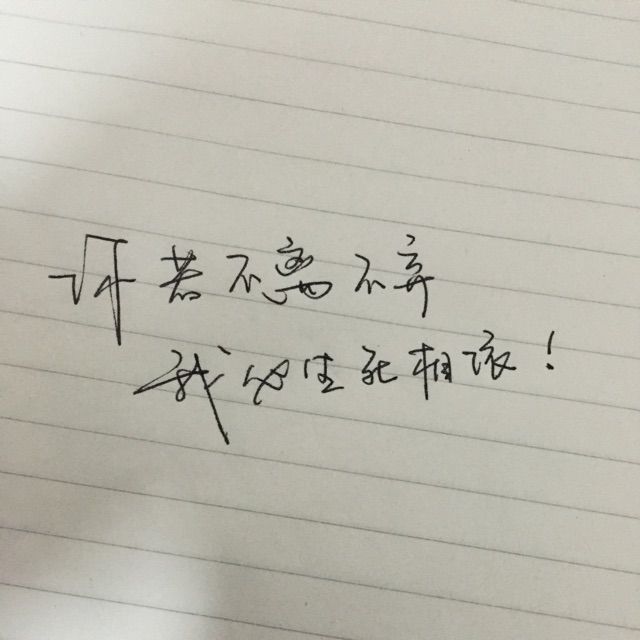 你若不离不弃
我必生死相依！